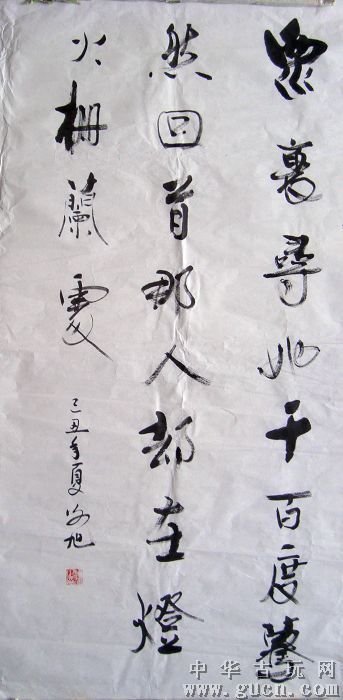 眾裏尋她千百度驀
然回首那人却在燈
火栅蘭處
己丑年夏 旭
中华古玩网
www.gucn.com